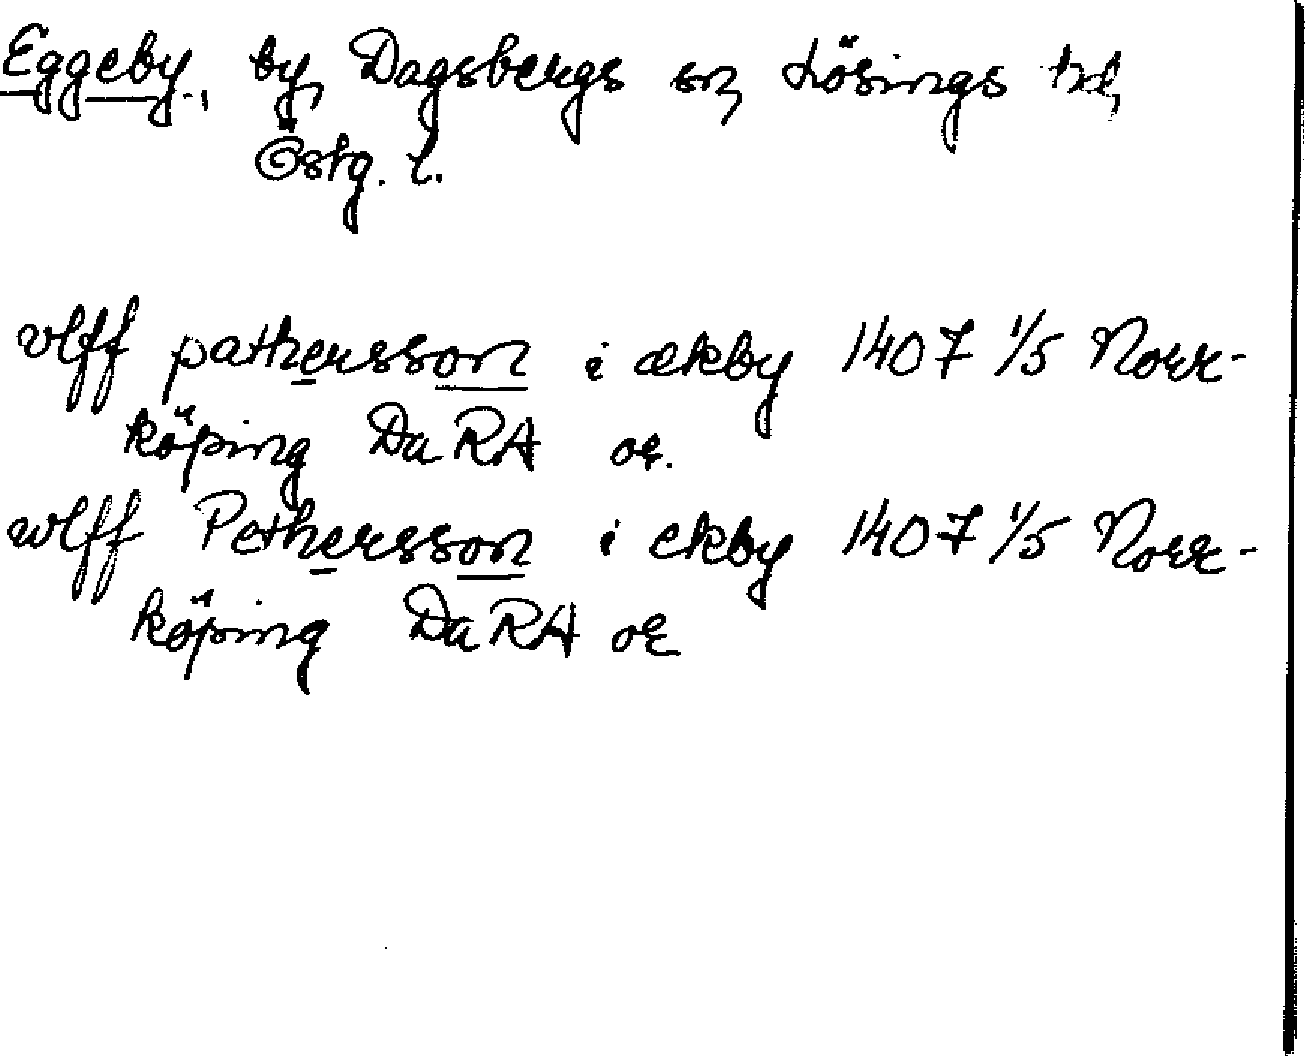 Eggeby, by, Dagsbergs sn, Lösings hd,
Östg. l.
vlff pathersson i ækby 1407 1/5 Norr-
köping DaRA or.
wlff Pethersson i ekby 1407 1/5 Norr-
köping DaRA or